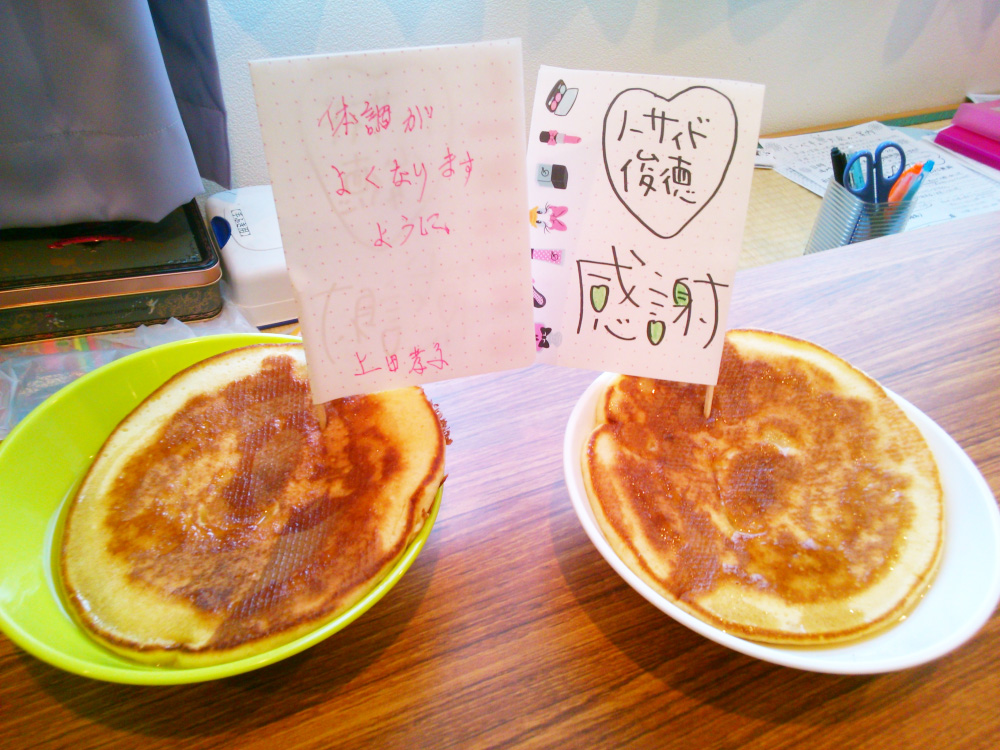 体調が
よくなります
ように
上田孝子
ノーサイド
俊徳
感謝